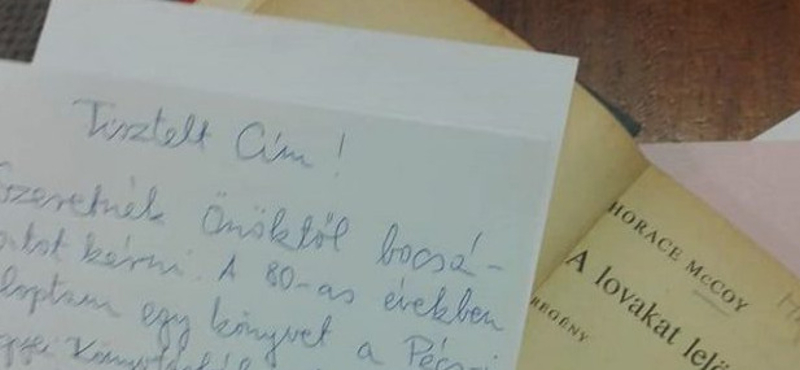 Tisztelt Cím!
Szeretnék Önöktől bocsá-
natot kérni. A 80-as években
loptam egy könyvet a Pécsi
HORACE McCOY
A lovakat lelö
REGÉNY